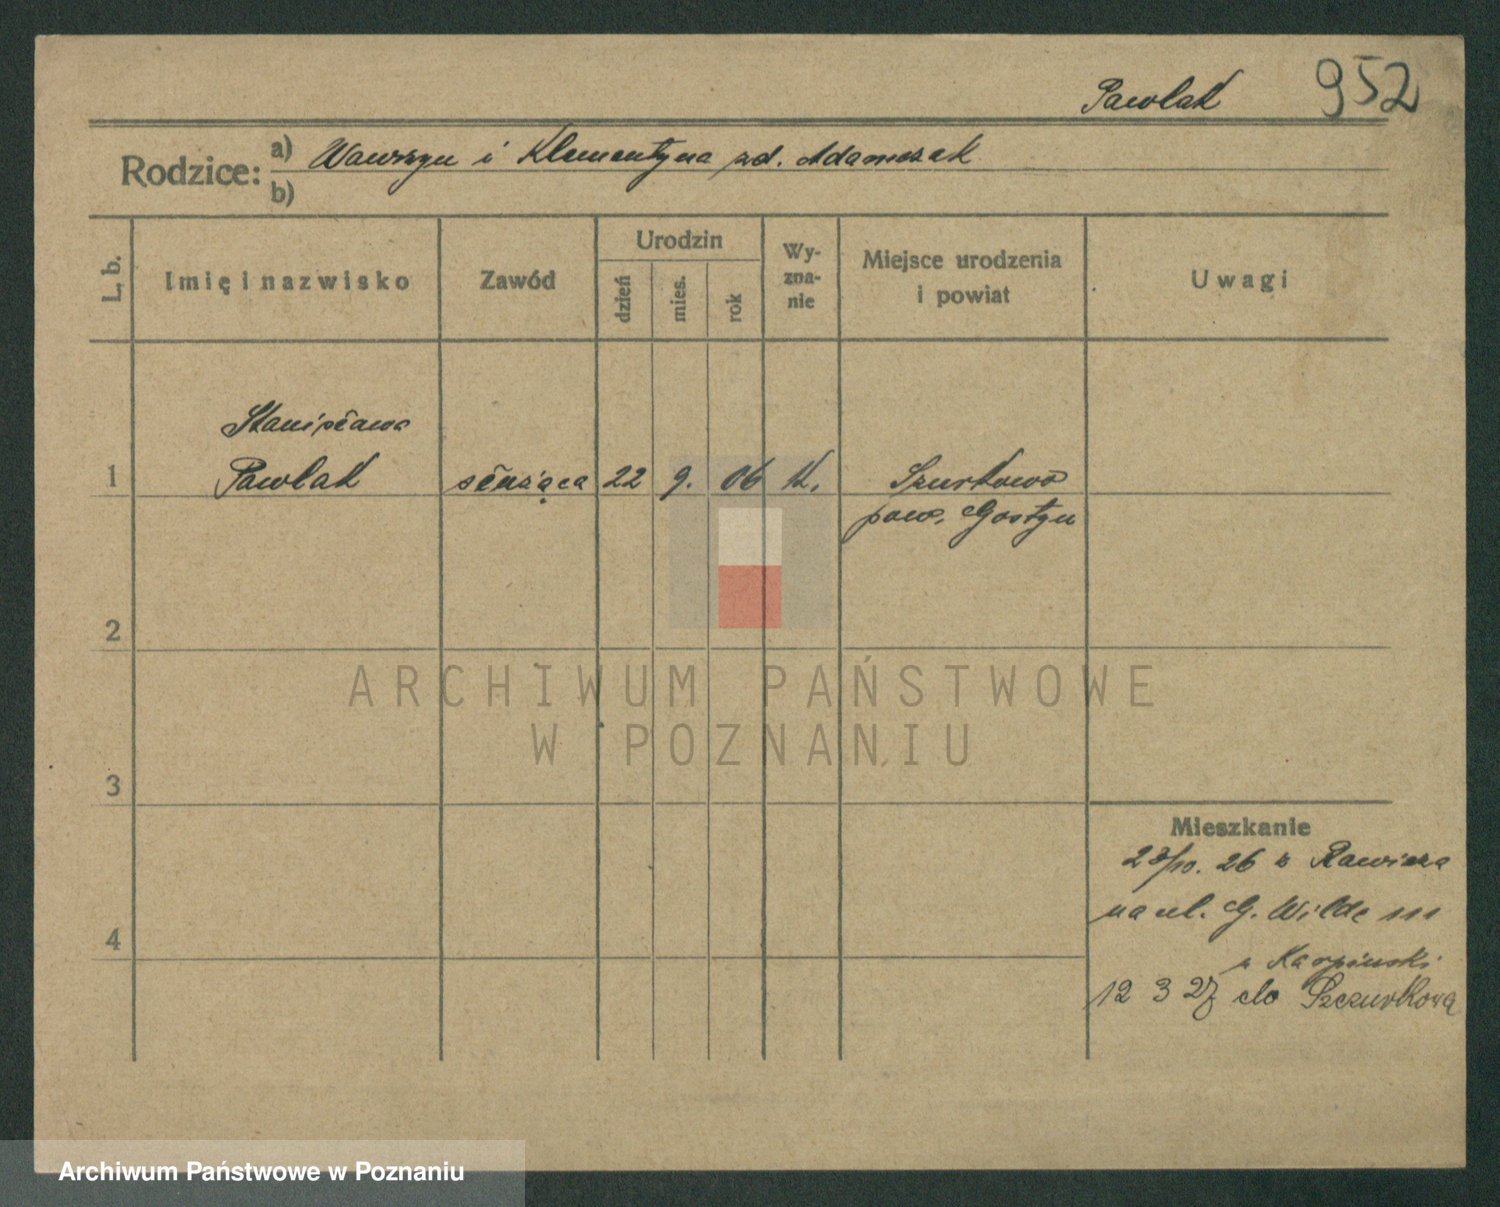 Pawlak 952
Rodzice: a) Wawrzyn i Klementyna zd. Adamczak
b)
L. b.
Imię i nazwisko
Zawód
Urodzin
dzień
mies.
rok
Wy-
zna-
nie
Miejsce urodzenia
i powiat
Uwagi
Stanisława
1 Pawlak służąca 22 9. 06 K. Szurkowo
pow. Gostyn
2
ARCHIWUM PAŃSTWOWE
W POZNANIU
3
Mieszkanie
23/10. 26 z Rawicza
na ul. G. Wilde 111
4
u Karpinski
12 3 27 do Szczurkowa
Archiwum Państwowe w Poznaniu